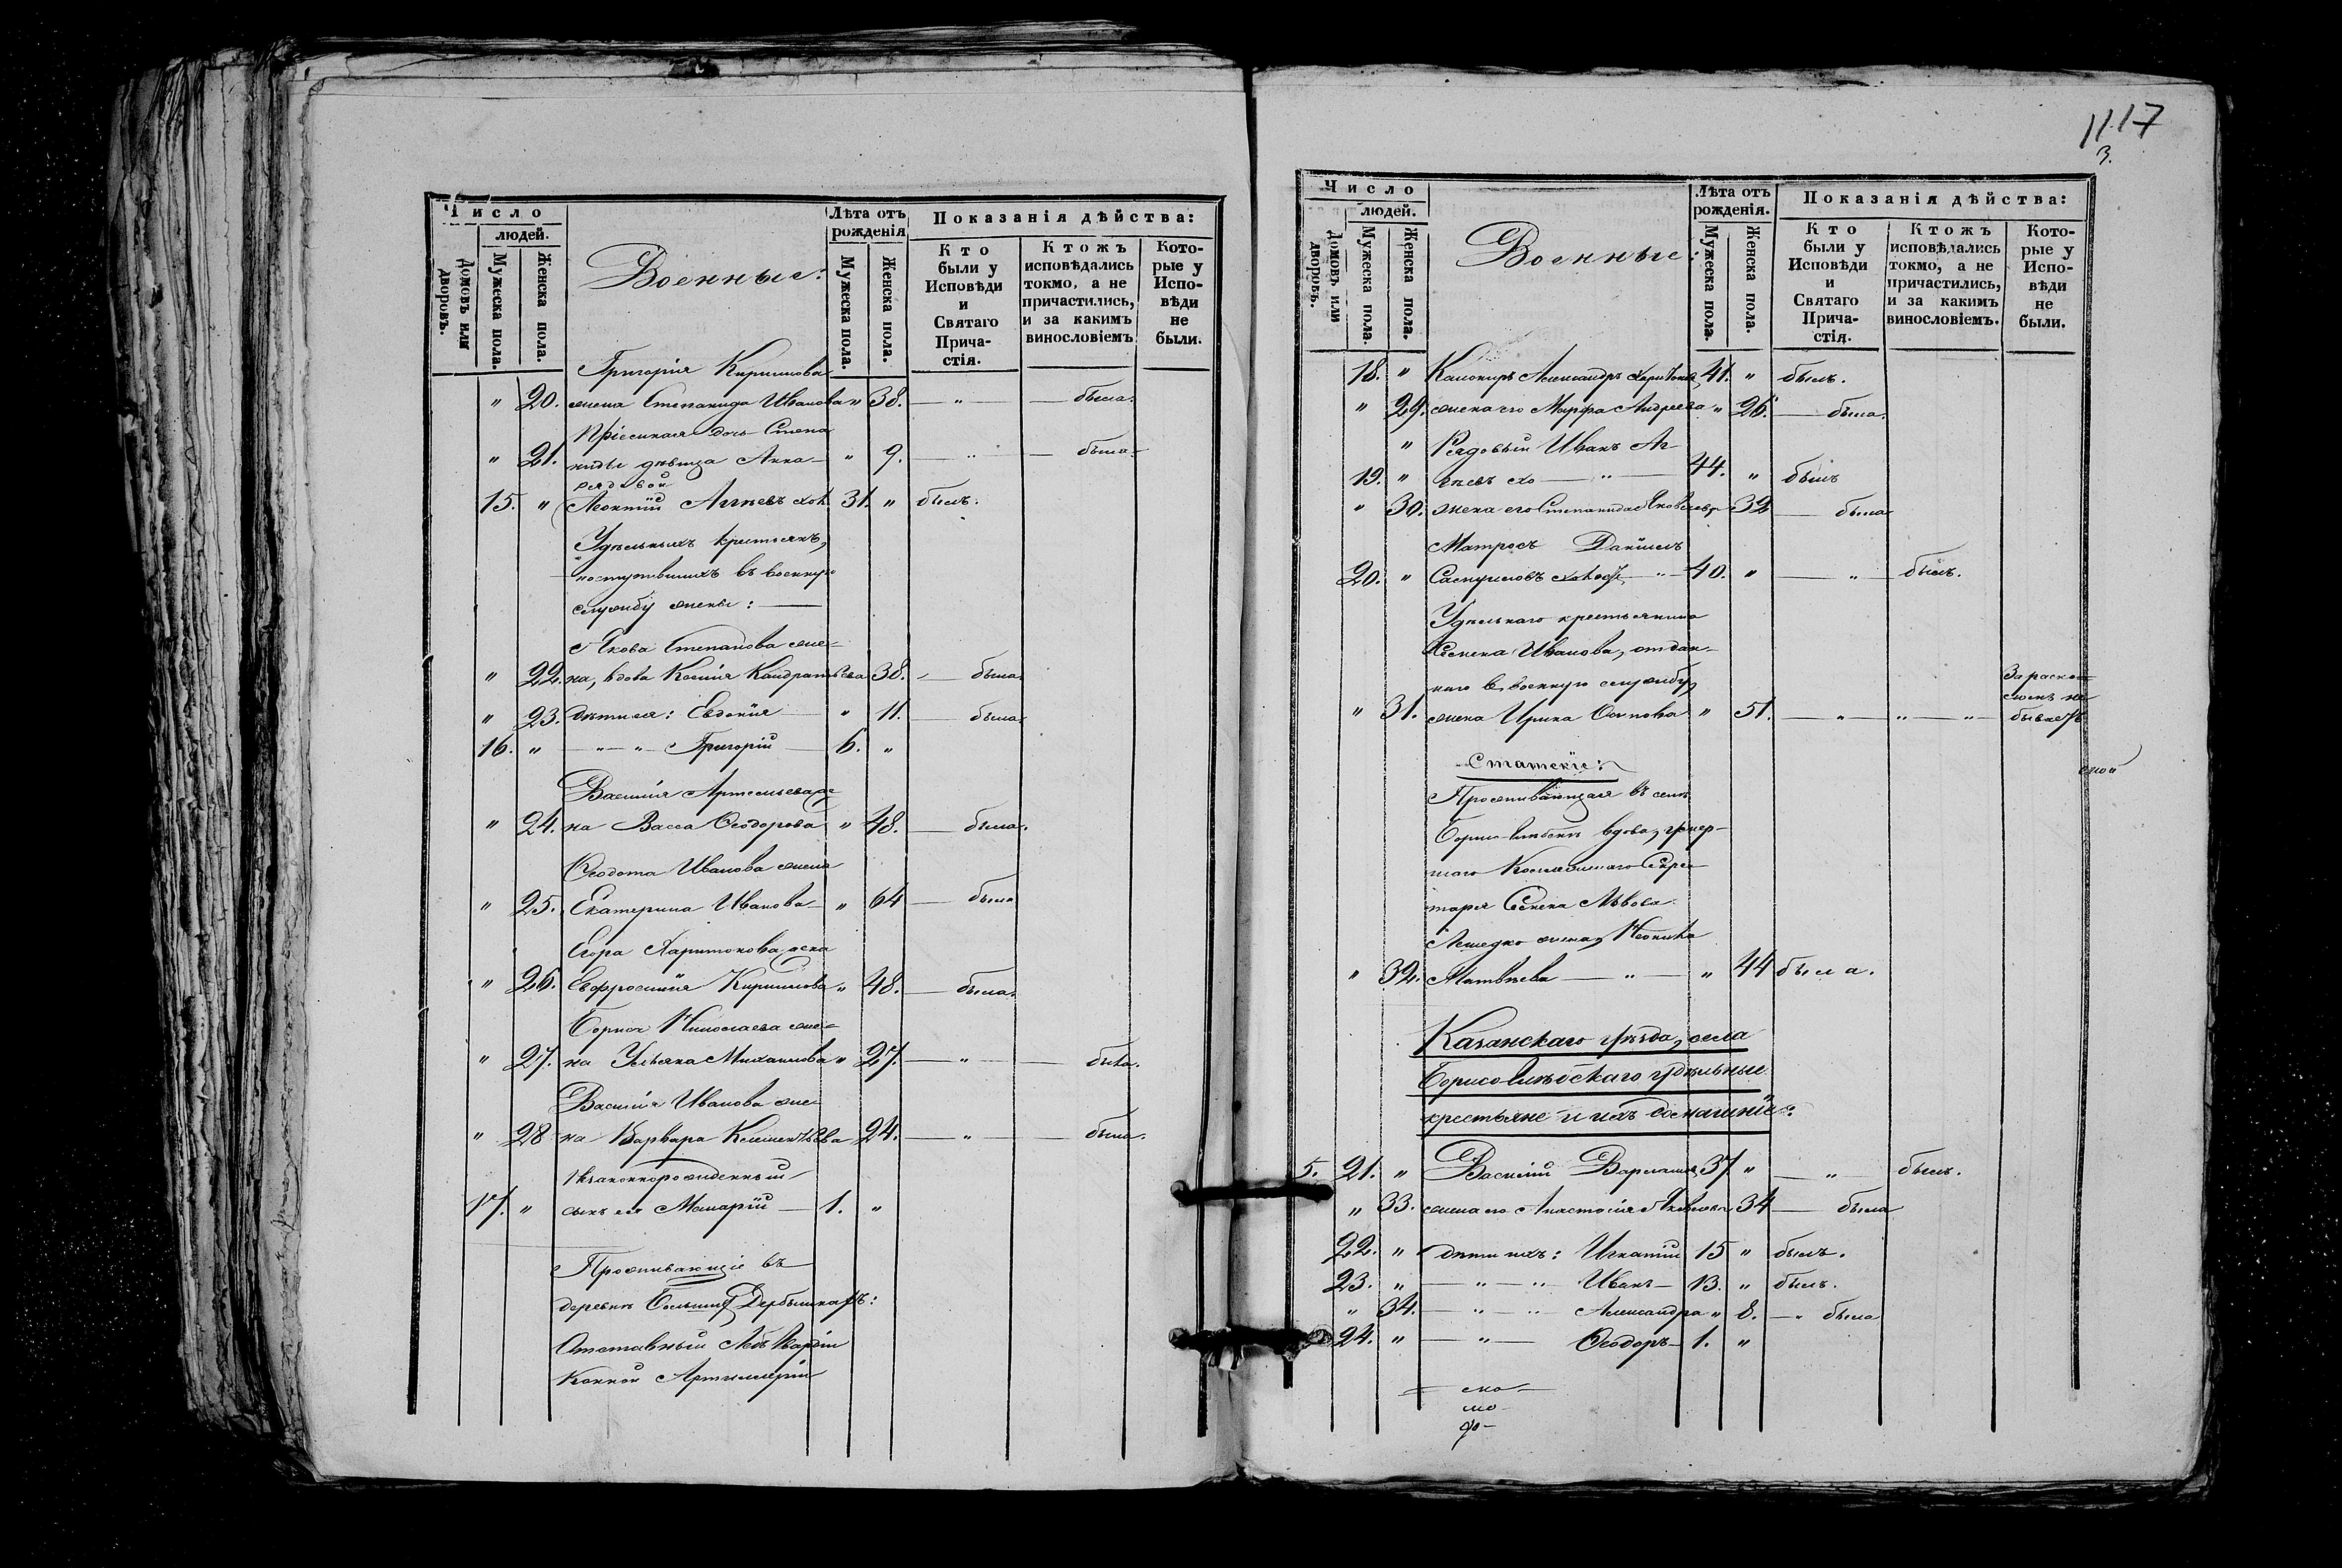 Число
людей.
Домовъ или дворовъ.
Мужеска пола.
Женска пола.
Военные:
Лѣта отъ рожденія
Мужеска пола.
Женска пола.
Показанія дѣйства:
Кто были у Исповѣди и Святаго Прича-стія.
Ктожъ исповѣдались токмо, а не причастились, и за какимъ винословіемъ
Кото-рые у Испо-вѣди не были.
Григорія Кирилова
" 20. жена Степанида Иванова " 38. — " — была.
Пріемная дочь Степа
" 21. ниды дѣвица Анна — " 9. — " — была.
рядовой
15. " Леонтій Агѣевъ хол. 31. " былъ.
Удѣльныхъ крестьянъ,
поступившихъ въ военную
службу жены: —
Якова Степанова же-
" 22. на, вдова Кандратьева 38. — была.
" 23. дѣти ея: Евдокія — " 11. — была.
16. " — " — " — Григорій — 6. "
Василія Артемьева же
" 24. на Васса Ѳеодорова " 48. — была.
Ѳедота Иванова жена
" 25. Екатерина Иванова — " 64 — была
Егора Харитонова жена
" 26. Евфросинія Кирилова " 48. — была.
Бориса Николаева же-
" 27. на Ульяна Михаилова " 27. — " — была.
Василія Иванова же-
" 28 на Варвара Клементьева 24. — " — была.
Незаконнорожденный
17. " сынъ ея Макарій — 1. "
Проживающіе въ
деревнѣ Большихъ Дербышкахъ:
Отставный Лейбъ Гвардіи
Конной Артиллеріи
1117
3.
Число
людей.
Домовъ или дворовъ.
Мужеска пола.
Женска пола.
Военные:
Лѣта отъ рожденія.
Мужеска пола.
Женска пола.
Показанія дѣйства:
Кто были у Исповѣди и Святаго Прича-стія.
Ктожъ исповѣдались токмо, а не причастились, и за какимъ винословіемъ.
Кото-рые у Испо-вѣди не были.
18. " Канониръ Александръ Харитонов 41. " былъ.
" 29. жена его Марфа Андреева " 26. — была.
" Рядовый Иванъ Аг-
19. " ѣевъ хо — " — 44. " былъ
" 30. жена его Степанида Яковлева 32 — была
Матросъ Даніилъ
20. " холост — " — 40. " — " — былъ.
Удѣльнаго крестьянина
Семена Иванова, отдан-
наго въ военную службу,
" 31. жена Ирина Осипова " 51. — " — " — " За раско-
ломъ не
бываетъ
Статскіе:
Проживающая въ селѣ
Борисоглѣбскѣ вдова, губер-
скаго Коллежскаго Секре-
таря Семена Львова
жена, Неонила
" 32. Матвѣева — " — " 44 была.
Казанскаго уѣзда, села
Борисоглѣбскаго удѣльные
крестьяне и ихъ домашніе:
5. 21. " Василій Варламовъ 37 " — " — былъ.
" 33. жена его Анастасія Яковлева 34 — была
22. " дѣти ихъ: Игнатій 15 " былъ.
23. " — " — " Иванъ — 13. " былъ.
" 34. — " — " Александра " 8. — " была
24. " — " — Ѳеодоръ — 1. "